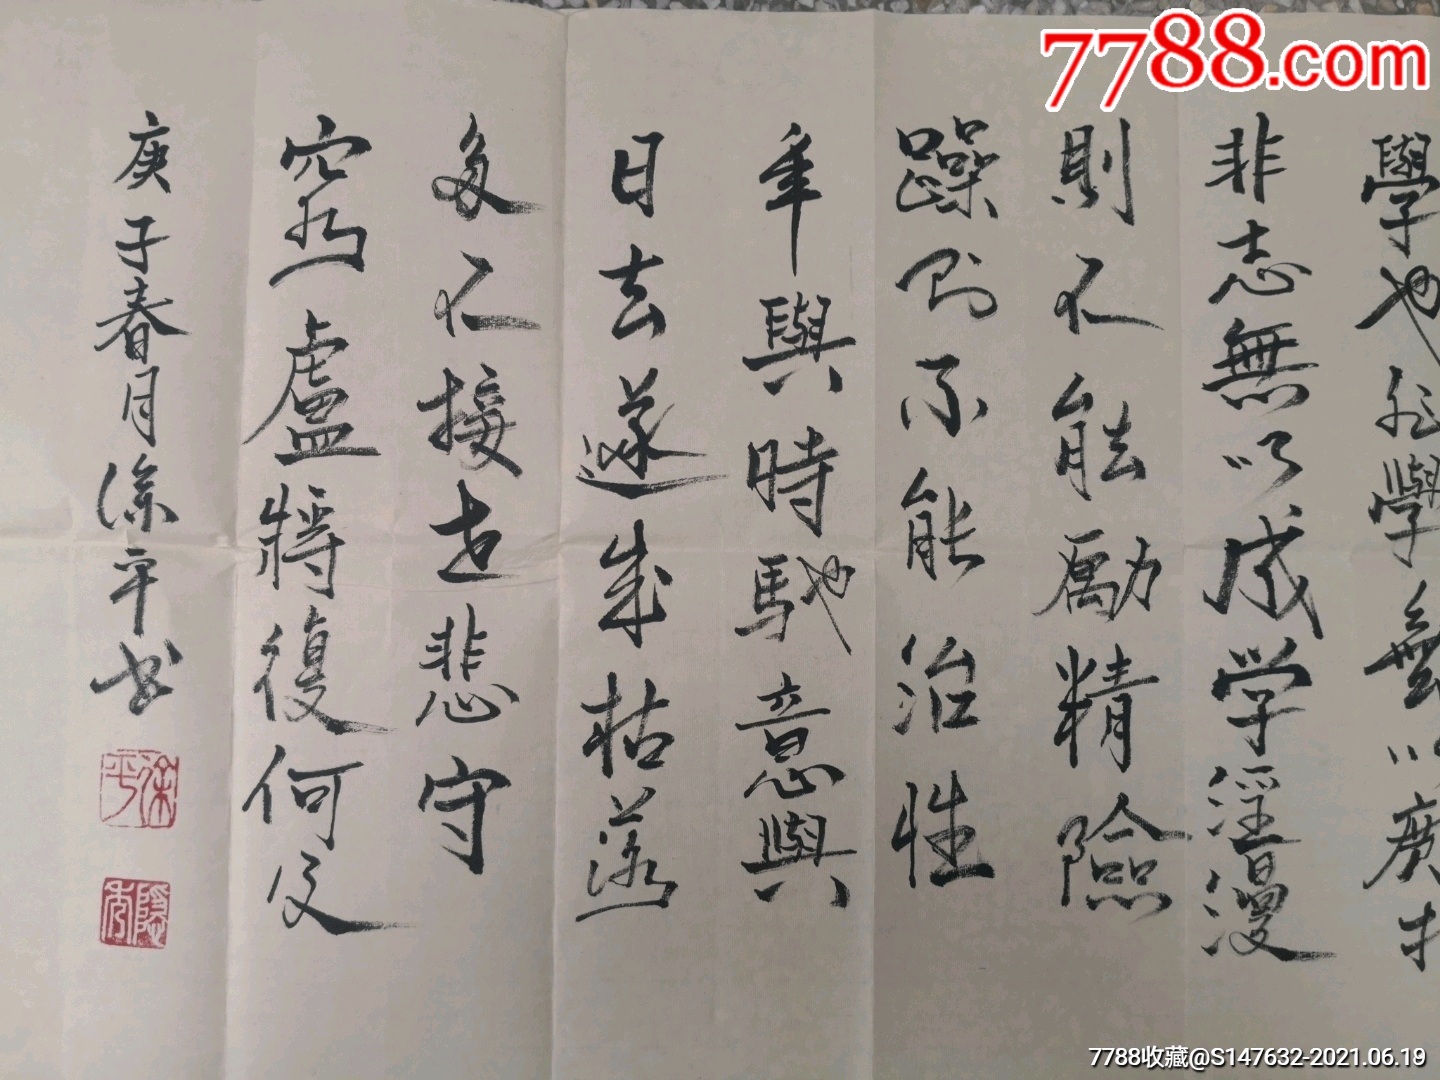 學也非學無以廣才
非志無以成学淫漫
則不能勵精險
躁則不能治性
年與時馳意與
日去遂成枯落
多不接世悲守
窮盧將復何及
庚子春月徐平书
徐平
7788.com
7788收藏@S147632-2021.06.19